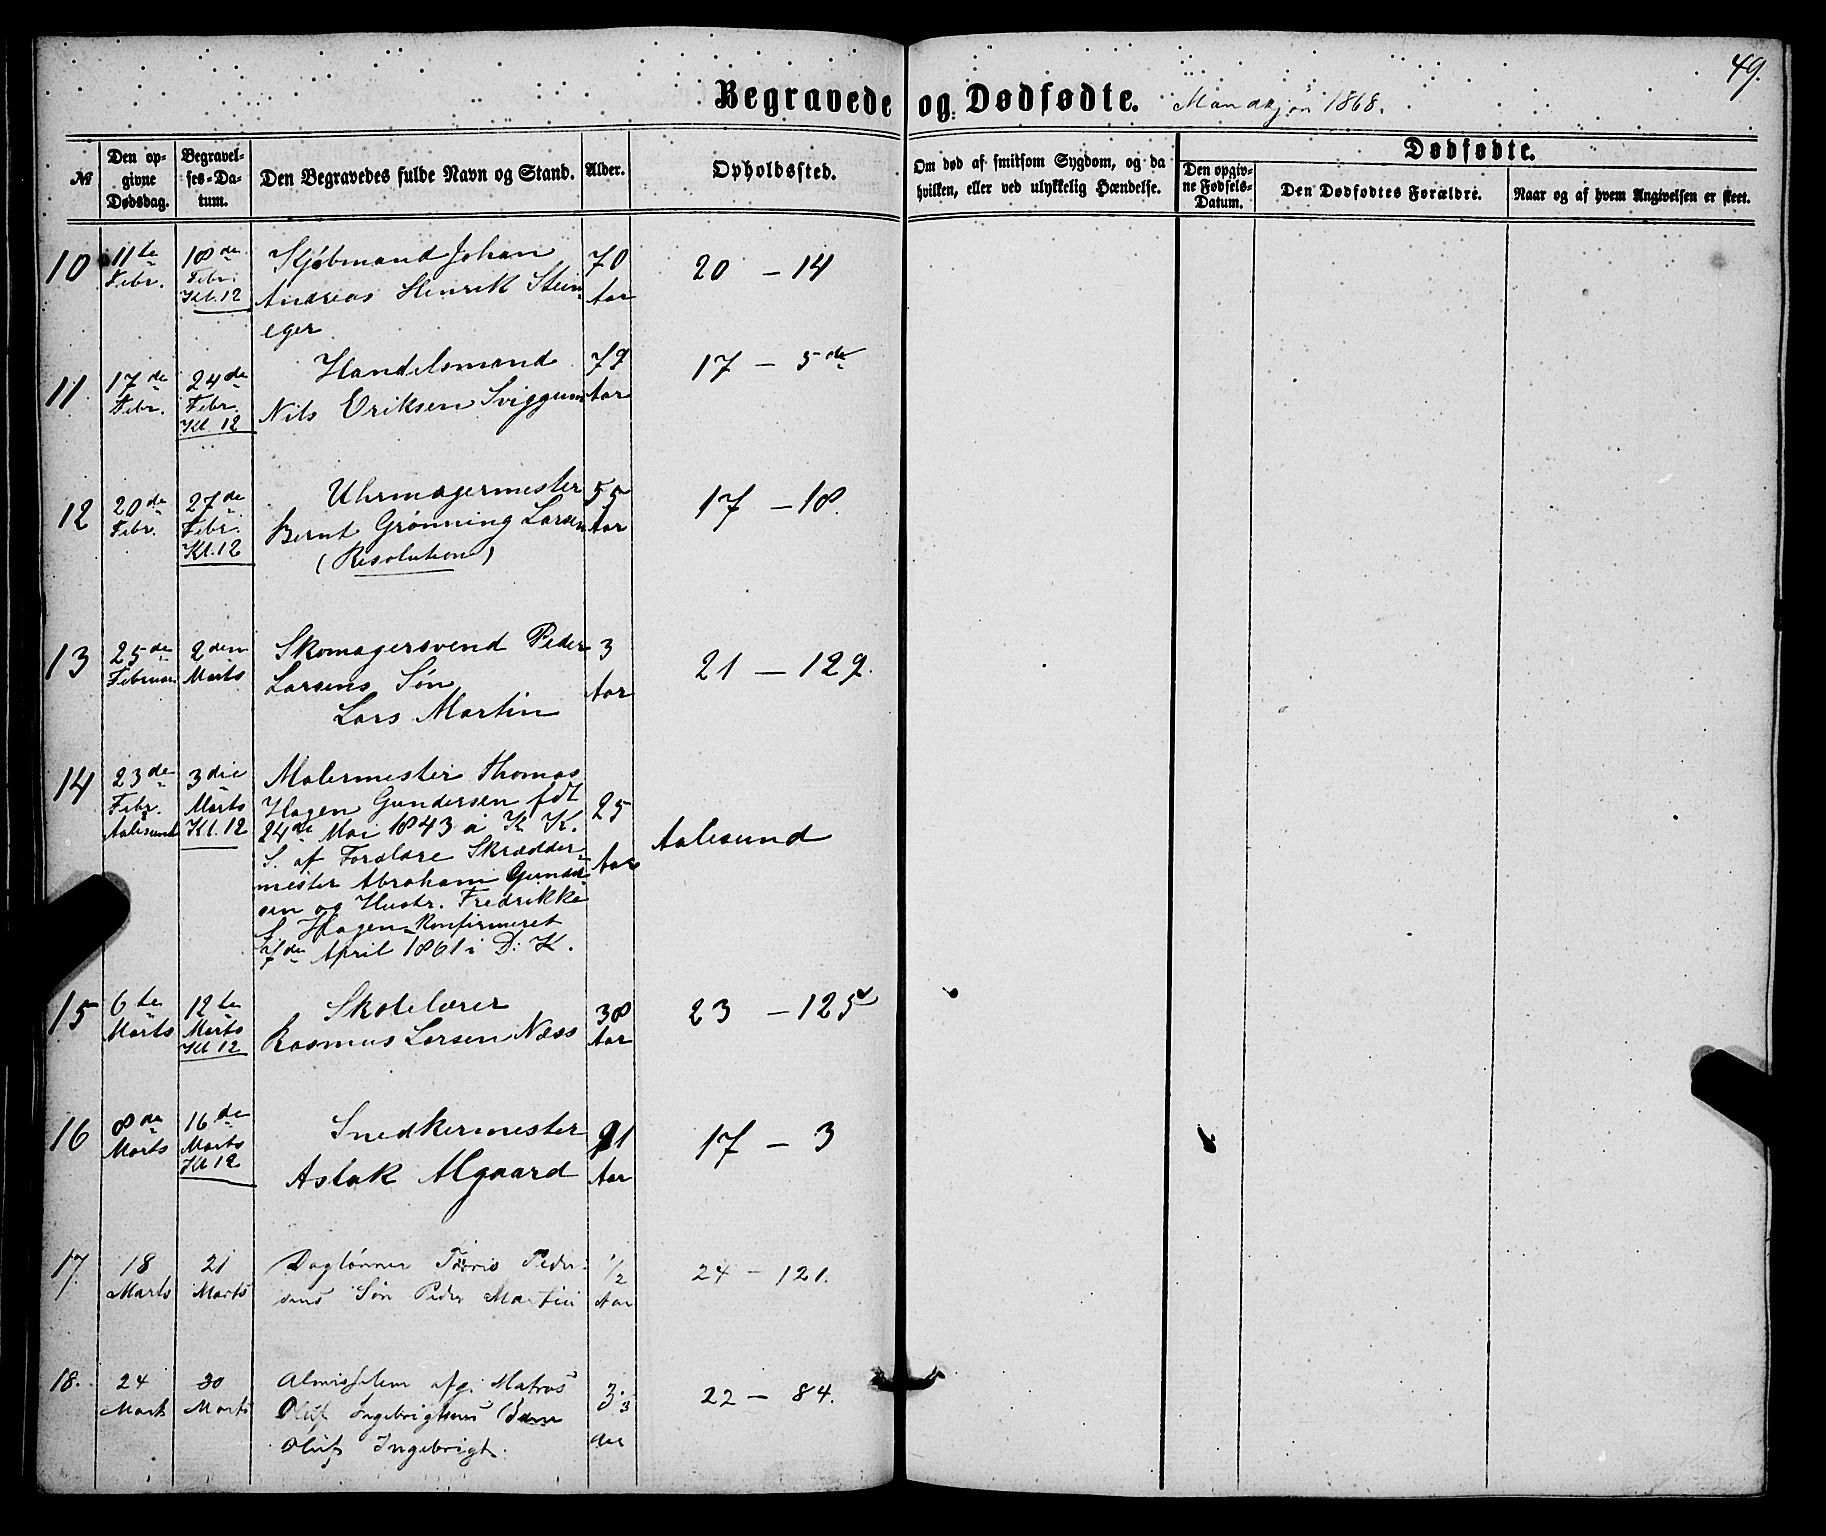 49.
Begravede og Dødfødte. Mandkjön 1868.
№
Den opgivne Dødsdag.
Begravelses-Datum.
Den Begravedes fulde Navn og Stand.
Alder.
Opholdssted.
Om død af smitsom Sygdom, og da hvilken, eller ved ulykkelig Hændelse.
Dødfødte.
Den opgivne Fødsels-Datum.
Den Dødfødtes Forældre.
Naar og af hvem Angivelsen er skeet.
10 11te Febr. 18de Febr. Kl. 12 Kjøbmand Johan 70 Aar 20 – 14
Andreas Henrik Stein
eger
11 17de Febr. 24de Febr. Kl. 12 Handelsmand 79 Aar 17 – 5de
Nils Eriksen Sviggum
12 20de Febr. 27de Febr. Kl. 12 Uhrmagermester 55 Aar 17 – 18.
Bernt Grønning Larsen
(Resolution)
13 25de Februar 2den Marts Skomagersvend Peder 3 Aar 21 – 129.
Larsens Søn
Lars Martin
14 23de Febr. Aalesund 3die Marts Kl. 12 Malermester Thomas 25 Aar Aalesund
Hagen Gundersen fdt
24de Mai 1843 i K. K.
S. af Forældre Skrædder-
mester Abraham Gunder-
sen og Hustr. Fredrikke
S. Hagen – Konfirmeret
7de April 1861 i D: K.
15 6te Marts 12te Marts Kl 12 Skolelærer 38 Aar 23 – 125
Rasmus Larsen Næss
16 8de Marts 16de Marts Kl 12 Snedkermester 91 Aar 17 – 3
Aslak Algaard
17. 18 Marts 21 Marts Daglønner Tørris Peder- 1/2 Aar 24 – 121.
sens Søn Peder Martin
18. 24 Marts 30 Marts Almisselem afg. Matros 3 Aar 22 – 84.
Oluf Ingebrigtsens Barn
Oluf Ingebrigt.